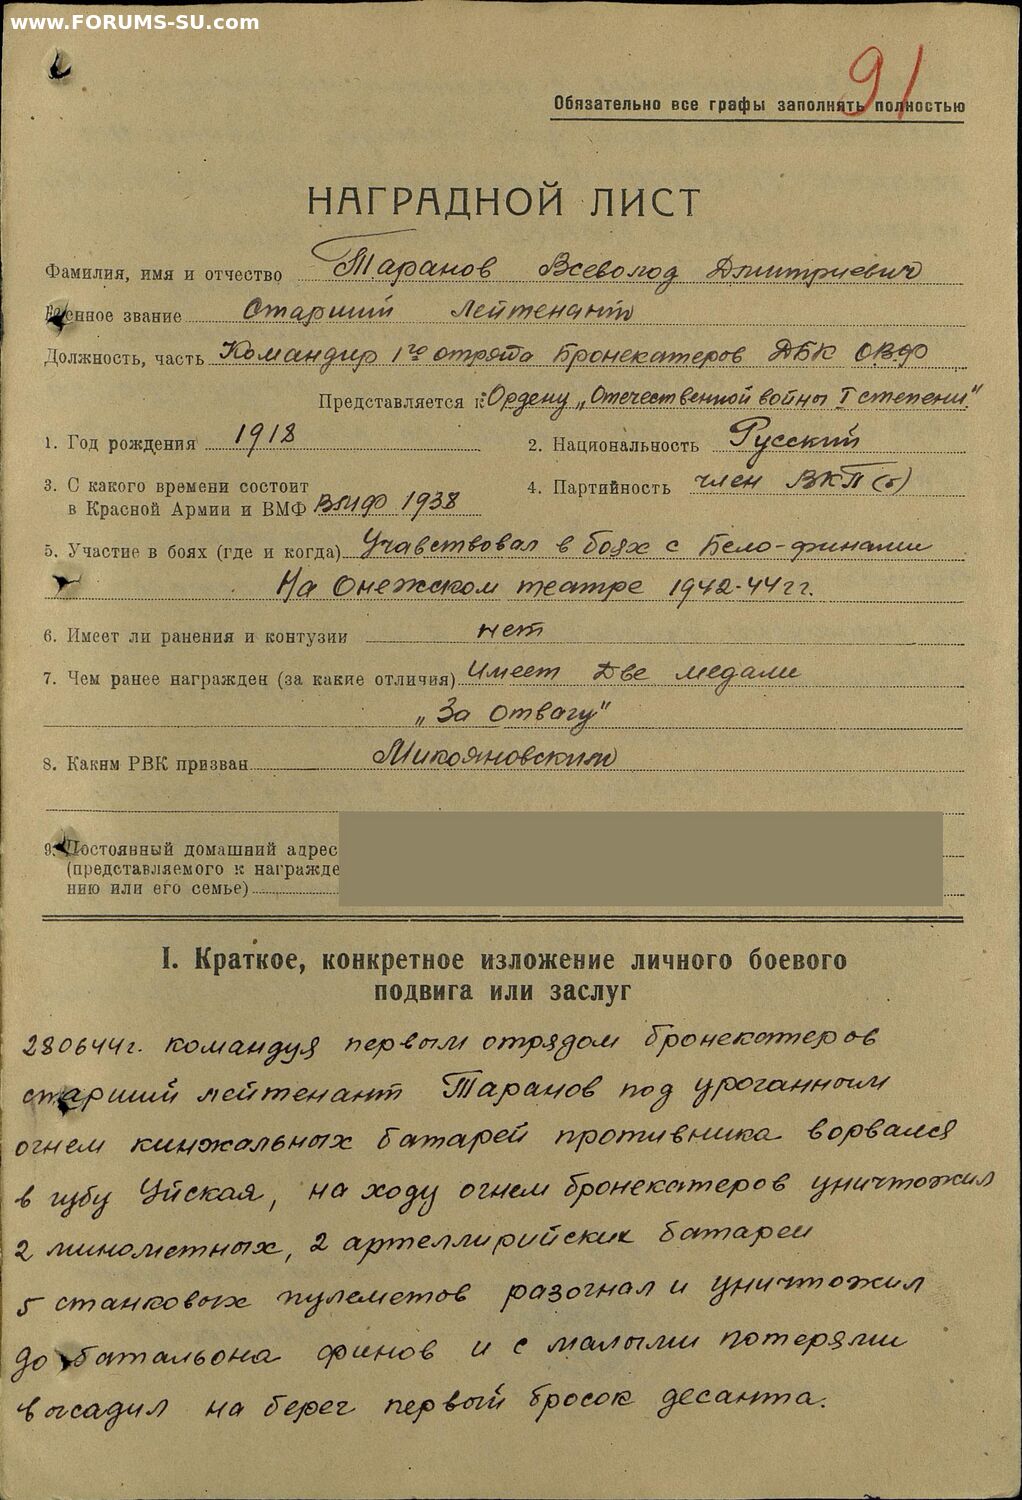 www.FORUMS-SU.com
91
Обязательно все графы заполнять полностью
НАГРАДНОЙ ЛИСТ
Фамилия, имя и отчество Таранов Всеволод Дмитриевич
Военное звание Старший лейтенант
Должность, часть Командир 1го отряда Бронекатеров ДБК ОВФ
Представляется к Ордену „Отечественной войны I степени"
1. Год рождения 1918
2. Национальность Русский
3. С какого времени состоит
в Красной Армии и ВМФ ВМФ 1938
4. Партийность член ВКП(б)
5. Участие в боях (где и когда) Учавствовал в боях с Бело-финами
На Онежском театре 1942-44 гг.
6. Имеет ли ранения и контузии нет
7. Чем ранее награжден (за какие отличия) Имеет Две медали
„За Отвагу"
8. Каким РВК призван Микояновским
9. Постоянный домашний адрес
(представляемого к награжде
нию или его семье)
I. Краткое, конкретное изложение личного боевого
подвига или заслуг
280644г. командуя первым отрядом бронекатеров
старший лейтенант Таранов под ураганным
огнем кинжальных батарей противника ворвался
в губу Уйская, на ходу огнем бронекатеров уничтожил
2 минометных, 2 артеллирийских батареи
5 станковых пулеметов разогнал и уничтожил
до батальона финов и с малыми потерями
высадил на берег первый бросок десанта.